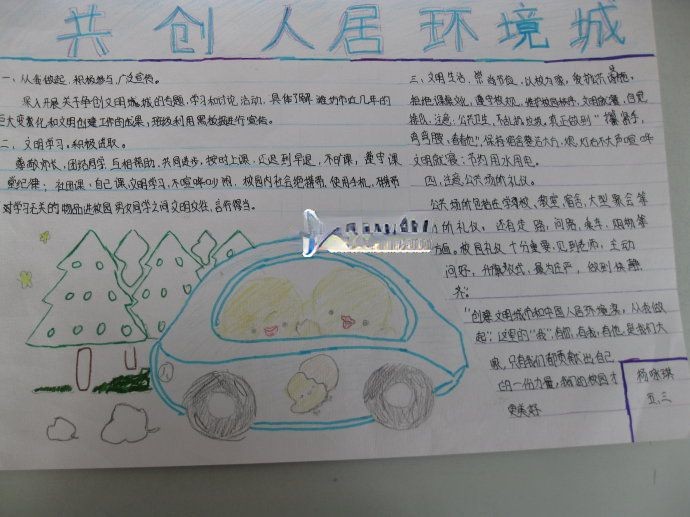 共创人居环境城
一、从我做起，积极参与，广泛宣传。
深入开展关于争创文明城市的专题，学习和讨论活动，具体了解潍坊市近几年的
巨大变化和文明创建工作的成果，班级利用黑板报进行宣传。
二、文明学习，积极进取。
尊敬师长，团结同学，互相帮助，共同进步，按时上课，不迟到早退，不旷课，遵守课
堂纪律；自习课，自己课，文明学习，不喧哗吵闹，校园内社会把携带，使用手机，携带
对学习无关的物品进校园，男女同学之间文明交往，言行得当。
三、文明生活，崇尚节俭，以校为家，爱护公共设施，
遵守校规，维护校园秩序，文明就餐，自觉
排队，注意公共卫生，不乱扔垃圾，真正做到"
保持宿舍整洁大方，熄灯后不大声喧哗
文明就寝；节约用水用电。
四、注意公共场的礼仪。
公共场所包括在学校，教室，宿舍，大型聚会等
的礼仪，还有走路，问路，乘车，购物等
方面。校园礼仪十分重要，见到老师，主动
问好，升旗仪式，最为庄严，做到快静
齐。
"创建文明城市和中国人居环境奖，从我做
起"这里的"我"有你，有我，有他，是我们大
家，只有我们都贡献出自己
的一份力量，我们的校园才
更美好
杨咏琪
五、三